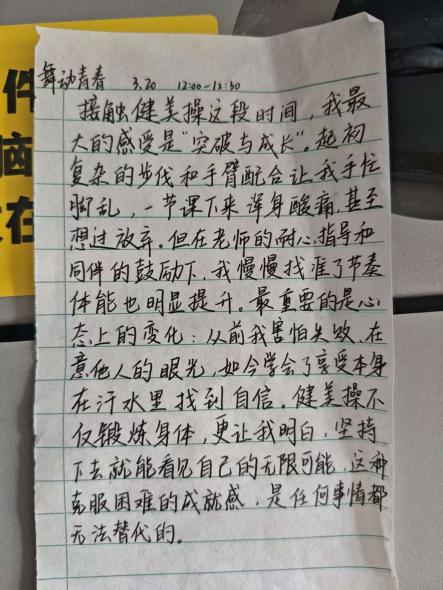 件
脑
在
舞动青春 3.20 12:00-12:30
接触健美操这段时间，我最
大的感受是“突破与成长”。起初
复杂的步伐和手臂配合让我手忙
脚乱，一节课下来浑身酸痛，甚至
想过放弃。但在老师的耐心指导和
同伴的鼓励下，我慢慢找准了节奏
体能也明显提升。最重要的是心
态上的变化：从前我害怕失败、在
意他人的眼光，如今学会了享受本身
在汗水里找到自信。健美操不
仅锻炼身体，更让我明白，坚持
下去就能看见自己的无限可能，这种
克服困难的成就感，是任何事情都
无法替代的。